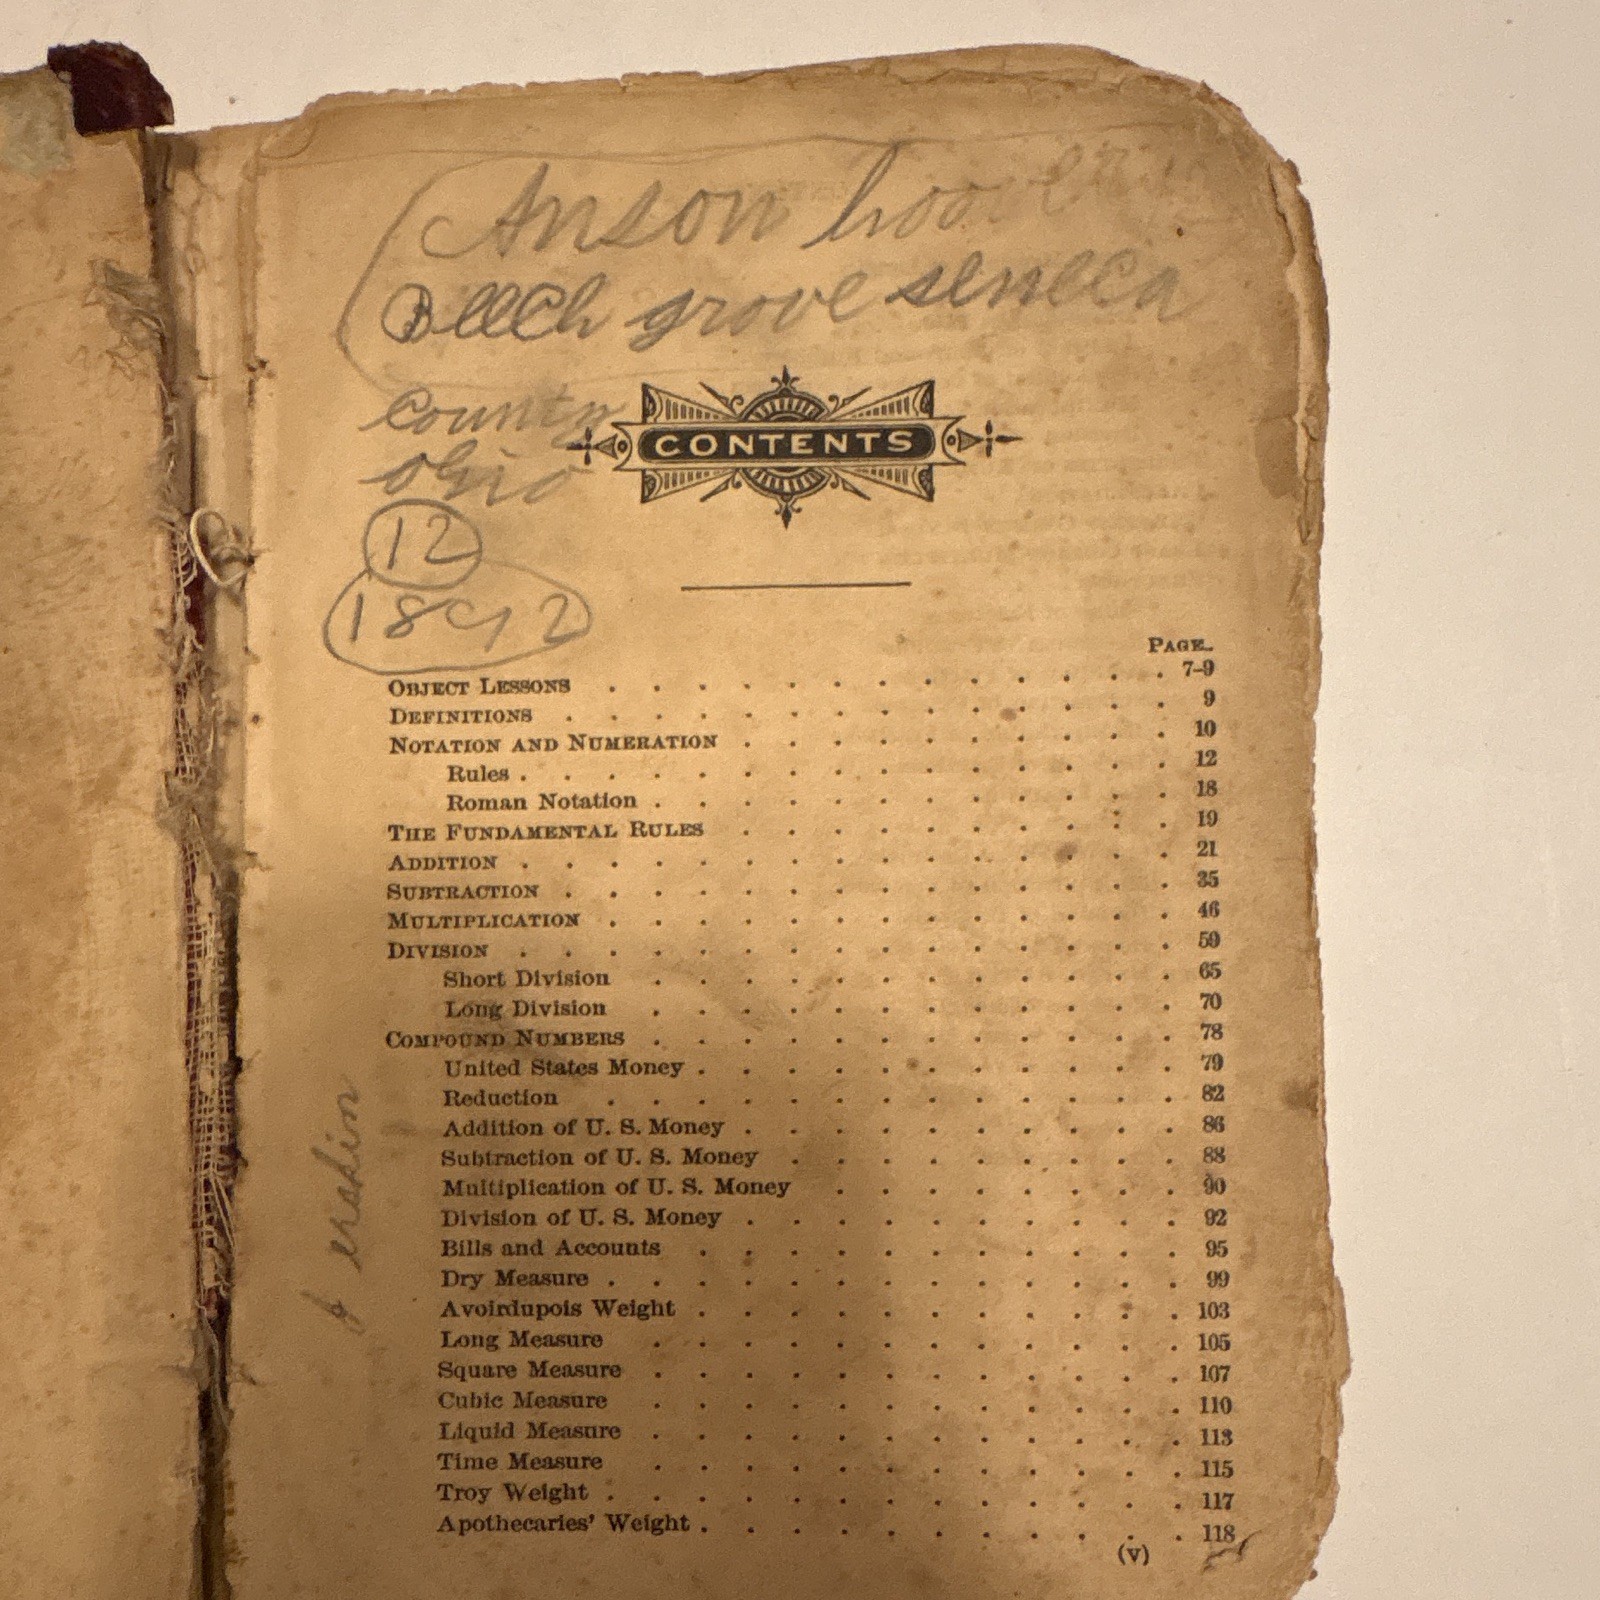 Anson hoover
Beech grove seneca
county
ohio
12
1892
CONTENTS
PAGE.
OBJECT LESSONS . . . . . . . . . . . . . 7-9
DEFINITIONS . . . . . . . . . . . . . . 9
NOTATION AND NUMERATION . . . . . . . . . . 10
Rules . . . . . . . . . . . . . . . 12
Roman Notation . . . . . . . . . . . . 18
THE FUNDAMENTAL RULES . . . . . . . . . . 19
ADDITION . . . . . . . . . . . . . . . 21
SUBTRACTION . . . . . . . . . . . . . . 35
MULTIPLICATION . . . . . . . . . . . . . 46
DIVISION . . . . . . . . . . . . . . . 59
Short Division . . . . . . . . . . . . 65
Long Division . . . . . . . . . . . . 70
COMPOUND NUMBERS . . . . . . . . . . . . 78
United States Money . . . . . . . . . . . 79
Reduction . . . . . . . . . . . . . 82
Addition of U. S. Money . . . . . . . . . . 86
Subtraction of U. S. Money . . . . . . . . . 88
Multiplication of U. S. Money . . . . . . . . 90
Division of U. S. Money . . . . . . . . . . 92
Bills and Accounts . . . . . . . . . . . 95
Dry Measure . . . . . . . . . . . . . 99
Avoirdupois Weight . . . . . . . . . . . 103
Long Measure . . . . . . . . . . . . 105
Square Measure . . . . . . . . . . . . 107
Cubic Measure . . . . . . . . . . . . 110
Liquid Measure . . . . . . . . . . . . 113
Time Measure . . . . . . . . . . . . 115
Troy Weight . . . . . . . . . . . . . 117
Apothecaries' Weight . . . . . . . . . . . 118
(v)